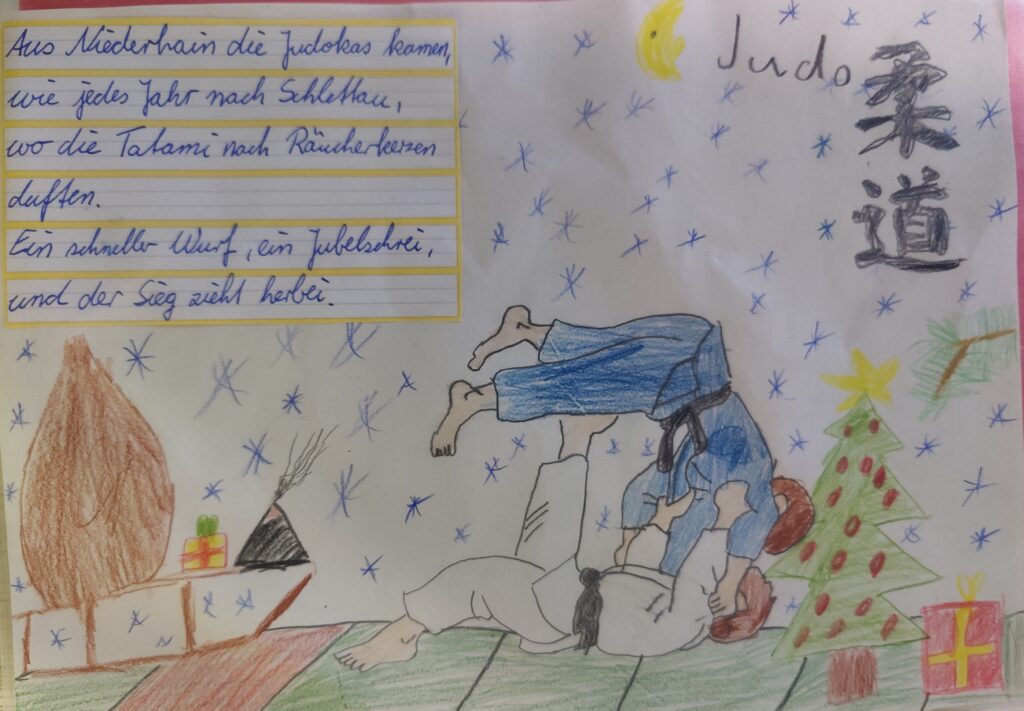 Aus Niederhain die Judokas kamen,
wie jedes Jahr nach Schlettau,
wo die Tatami nach Räucherkerzen
duften.
Ein schneller Wurf, ein Jubelschrei,
und der Sieg zieht herbei.
Judo
柔
道